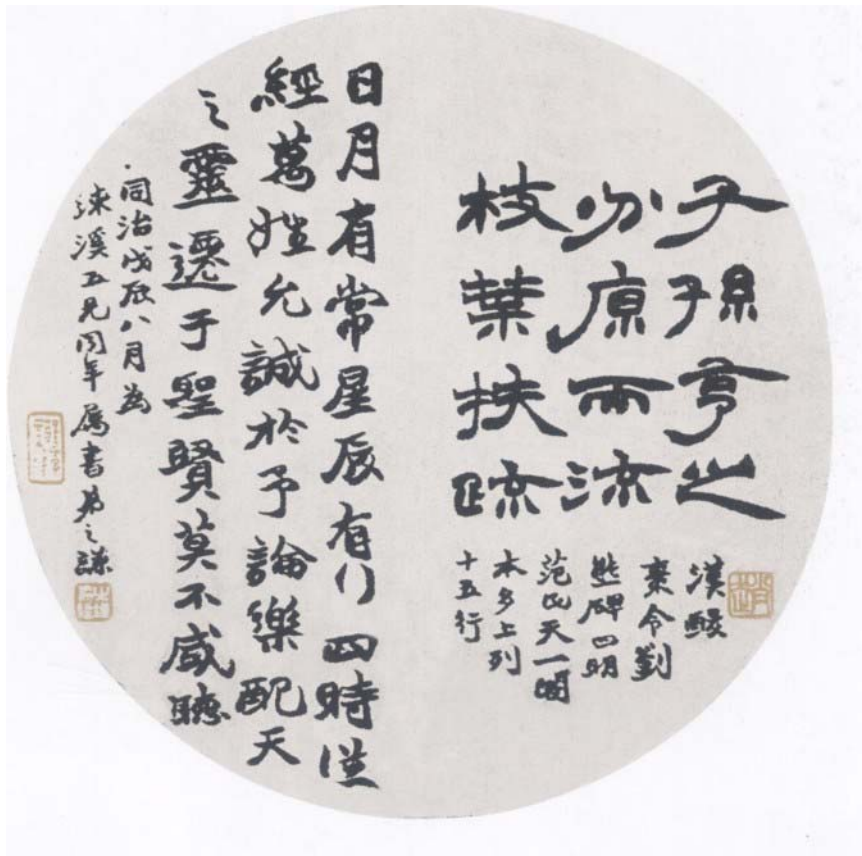 子孫享之
分原而流
枝葉扶疏
漢酸
棗令劉
熊碑四明
范氏天一閣
本多上列
十五行
日月有常星辰有行四時從
經萬姓允誠於予論樂配天
之靈遷于聖賢莫不咸聽
同治戊辰八月為
溪五兄同年屬書弟之謙